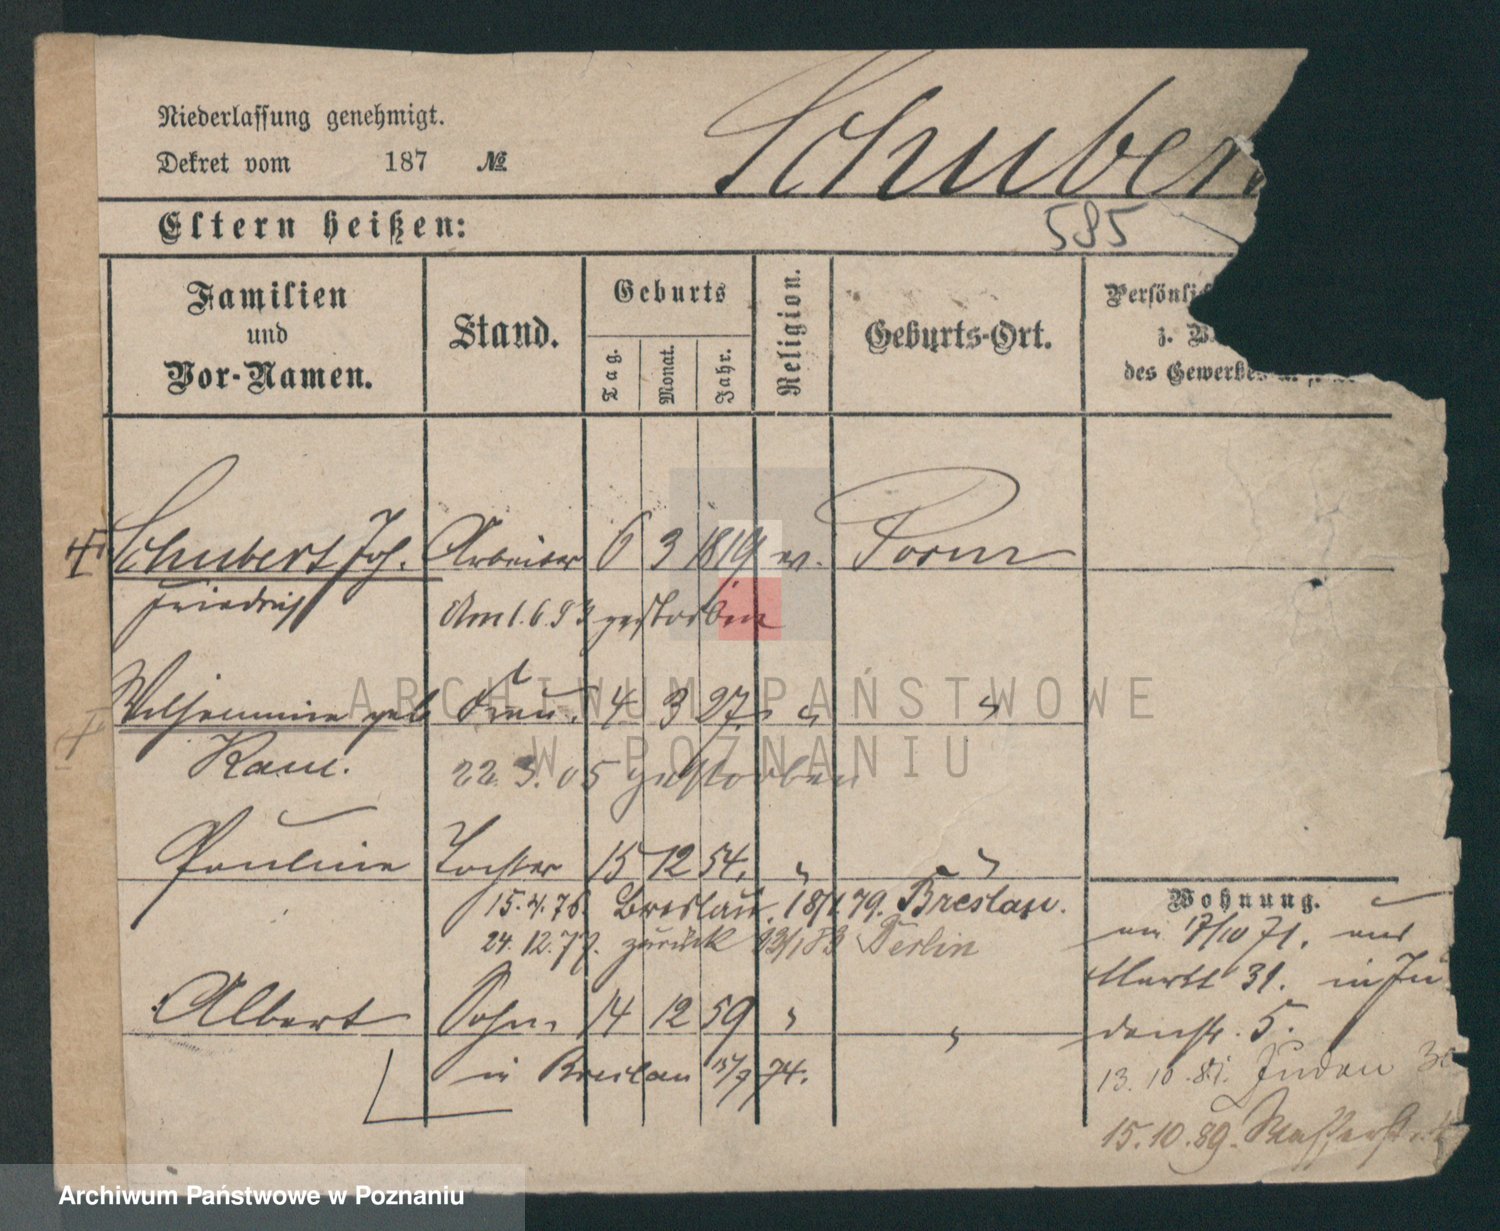 Niederlassung genehmigt.
Dekret vom 187 №
Schuber
585
Eltern heißen:
Familien und Vor-Namen.
Stand.
Geburts
Tag. Monat. Jahr.
Religion.
Geburts-Ort.
Persönlic
z. B
des Gewerbes
Schubert Joh. Arbeiter 6 3 1819 ev. Posen
Friedrich Am 1. 6. 93 gestorben
Wilhelmine geb. Frau. 4 3 27 " "
22. 3. 05 gestorben
Pauline Tochter 15 12 54. " "
15. 4. 76. Breslau. 18/1 79. Breslau.
24. 12. 77. zurück 23/1 83 Berlin
Albert Sohn 14 12 59 " "
in Breslau 15/9 74.
Wohnung.
17/10 71.
Markt 31. in Ju
denstr. 5.
13. 10. 81. Juden
15. 10. 89. Wasserst
ARCHIWUM PAŃSTWOWE
W POZNANIU
Archiwum Państwowe w Poznaniu